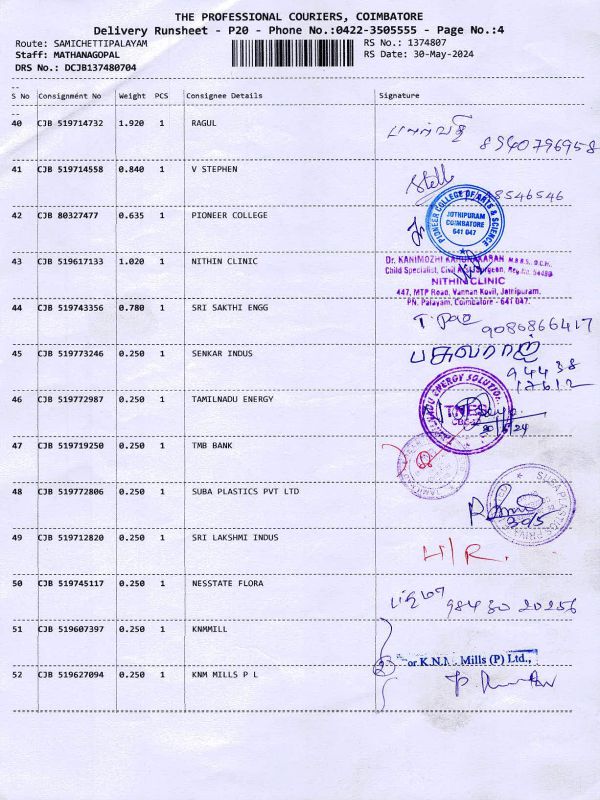 THE PROFESSIONAL COURIERS, COIMBATORE
Delivery Runsheet - P20 - Phone No.:0422-3505555 - Page No.:4
Route: SAMICHETTIPALAYAM
RS No.: 1374807
Staff: MATHANAGOPAL
RS Date: 30-May-2024
DRS No.: DCJB137480704
S No Consignment No Weight PCS Consignee Details Signature
40 CJB 519714732 1.920 1 RAGUL
8940796958
41 CJB 519714558 0.840 1 V STEPHEN
8546546
42 CJB 80327477 0.635 1 PIONEER COLLEGE
PIONEER COLLEGE OF ARTS & SCIENCE
JOTHIPURAM
COIMBATORE
641 047
43 CJB 519617133 1.020 1 NITHIN CLINIC
Dr. KANIMOZHI KARUNAKARAN M.B.B.S., D.C.H.,
Child Specialist, Civil Asst. Surgeon, Reg.No.
NITHIN CLINIC
447, MTP Road, Vannan Kovil, Jothipuram,
PN. Palayam, Coimbatore - 641 047.
44 CJB 519743356 0.780 1 SRI SAKTHI ENGG
9086866417
45 CJB 519773246 0.250 1 SENKAR INDUS
94438
17612
46 CJB 519772987 0.250 1 TAMILNADU ENERGY
TAMILNADU ENERGY SOLUTION
TNES
47 CJB 519719250 0.250 1 TMB BANK
48 CJB 519772806 0.250 1 SUBA PLASTICS PVT LTD
30/5
49 CJB 519712820 0.250 1 SRI LAKSHMI INDUS
H/R.
50 CJB 519745117 0.250 1 NESSTATE FLORA
984 30 20256
51 CJB 519607397 0.250 1 KNMMILL
For K.N.M. Mills (P) Ltd.,
52 CJB 519627094 0.250 1 KNM MILLS P L